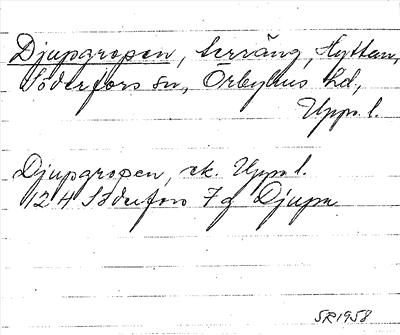 Djupgropen, terräng, Hyttan,
Söderfors sn, Örbyhus hd,
Upps. l.
Djupgropen, ek. Upps. l.
12 H Söderfors 7 g Djupa
SR 1958